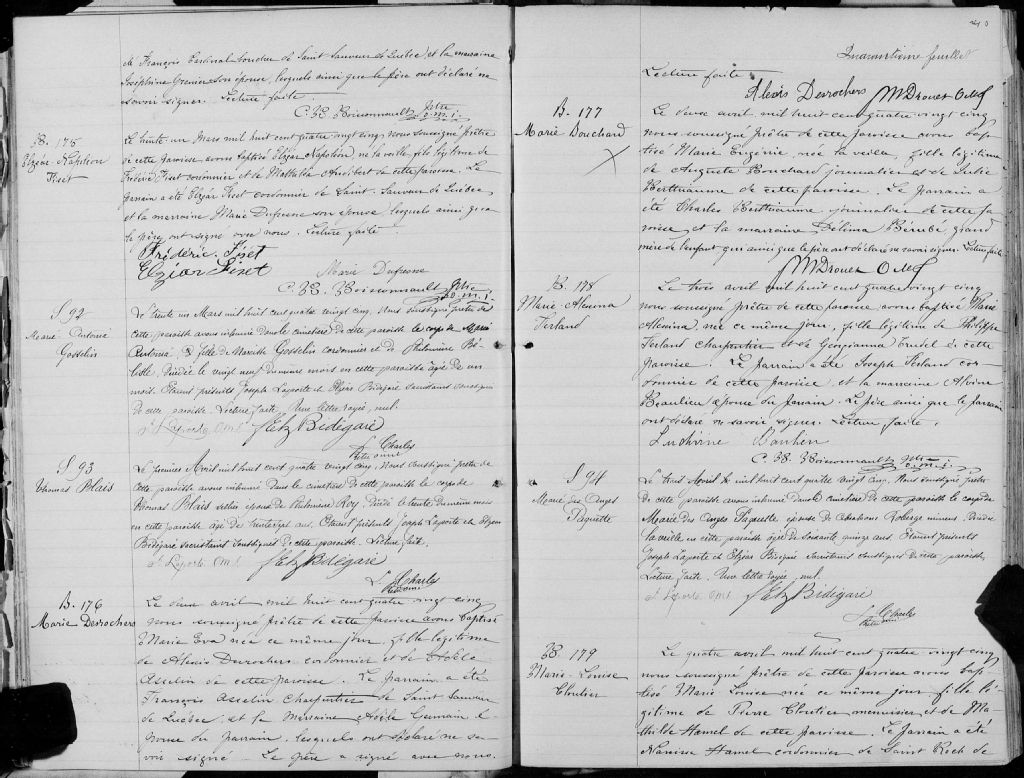 de François Ferdinal Boudou de Saint Sauveur de Québec et la marraine
Joséphine Grenier son épouse, lesquels ainsi que le père ont déclaré ne
savoir signer. Lecture faite.
C. B. Boissonnault Ptre
o.m.i.
B. 175
Elzéar Napoléon
Fiset
Le trente un Mars mil huit cent quatre vingt cinq nous soussigné prêtre
de cette paroisse avons baptisé Elzéar Napoléon, né la veille, fils légitime de
Frédéric Fiset cordonnier et de Mathilda Audibert de cette paroisse. Le
parrain a été Elzéar Fiset cordonnier de Saint-Sauveur de Québec
et la marraine Marie Dufresne son épouse, lesquels ainsi que
le père ont signé avec nous. Lecture faite.
Frédéric Fiset
Elzéar Fiset Marie Dufresne
C. B. Boissonnault Ptre
o.m.i.
S 92
Marie Antonia
Gosselin
Le trente un Mars mil huit cent quatre vingt cinq, Nous soussigné prêtre de
cette paroisse avons inhumé dans le cimetière de cette paroisse le corps de Marie
Antonia, fille de Gosselin cordonnier et de Philomène
Décédée le vingt neuf du même mois en cette paroisse âgée de un
mois. Etaient présents Joseph Laporte et Elzéar Bédigaré sacristains soussignés
de cette paroisse. Lecture faite. Une lettre rayée, nul.
Js Laporte Omi f Elz Bédigaré
L. J. Charles
Ptre omi
S 93
Thomas Blais
Le premier Avril mil huit cent quatre vingt cinq, Nous soussigné prêtre de
cette paroisse avons inhumé dans le cimetière de cette paroisse le corps de
Thomas Blais sellier époux de Philomène Roy. Décédé le trente du même mois
en cette paroisse âgé de trente sept ans. Etaient présents Joseph Laporte et Elzéar
Bédigaré sacristains soussignés de cette paroisse. Lecture faite.
Js Laporte Omi f Elz Bédigaré
L. J. Charles
Ptre omi
B. 176
Marie Desrochers
Le deux avril mil huit cent quatre vingt cinq
nous soussigné prêtre de cette paroisse avons baptisé
Marie Eva née ce même jour, fille légitime
de Alexis Desrochers cordonnier et de Adèle
Asselin de cette paroisse. Le parrain a été
François Asselin charpentier de Saint Sauveur
de Québec et la marraine Adèle Germain é-
pouse du parrain, lesquels ont déclaré ne sa-
voir signé. Le père a signé avec nous.
40
Quarantième feuillet
Lecture faite
Alexis Desrochers M Drouet OMI
B. 177
Marie Bouchard
Le deux avril mil huit cent quatre vingt cinq
nous soussigné prêtre de cette paroisse avons bap-
tisé Marie Eugénie, née la veille, fille légitime
de Auguste Bouchard journalier et de Julie
Berthiaume de cette paroisse. Le parrain a
été Charles Berthiaume journalier de cette pa-
roisse, et la marraine Délina Bérubé grand'
mère de l'enfant qui ainsi que le père ont déclaré ne savoir signer. Lecture faite
M Drouet OMI
B. 178
Marie Alenina
Ferland
Le trois avril mil huit cent quatre vingt cinq
nous soussigné prêtre de cette paroisse avons baptisé Marie
Alenina, née ce même jour, fille légitime de Philippe
Ferland charpentier et de Georgianne Trudel de cette
paroisse. Le parrain a été Joseph Ferland cor-
donnier de cette paroisse et la marraine Alvina
Beaulieu épouse du parrain. Le père ainsi que le parrain
ont déclaré ne savoir signer. Lecture faite.
Ludivine
C. B. Boissonnault Ptre
o.m.i.
S 94
Marie des Anges
Paquette
Le trois Avril mil huit cent quatre vingt cinq. Nous soussigné prêtre
de cette paroisse avons inhumé dans le cimetière de cette paroisse le corps de
Marie des Anges Paquette épouse de Roberge mineur. Décédée
la veille en cette paroisse âgée de soixante quinze ans. Etaient présents
Joseph Laporte et Elzéar Bédigaré Sacristains soussignés de cette paroisse,
Lecture faite. Une lettre rayée, nul.
Js Laporte Omi f Elz Bédigaré
L. J. Charles
Ptre omi
B 179
Marie-Louise
Cloutier
Le quatre avril mil huit cent quatre vingt cinq
nous soussigné prêtre de cette paroisse avons bap-
tisé Marie Louise née ce même jour fille lé-
gitime de Pierre Cloutier menuisier et de Ma-
thilde Hamel de cette paroisse. Le parrain a été
Narcisse Hamel cordonnier de Saint Roch de